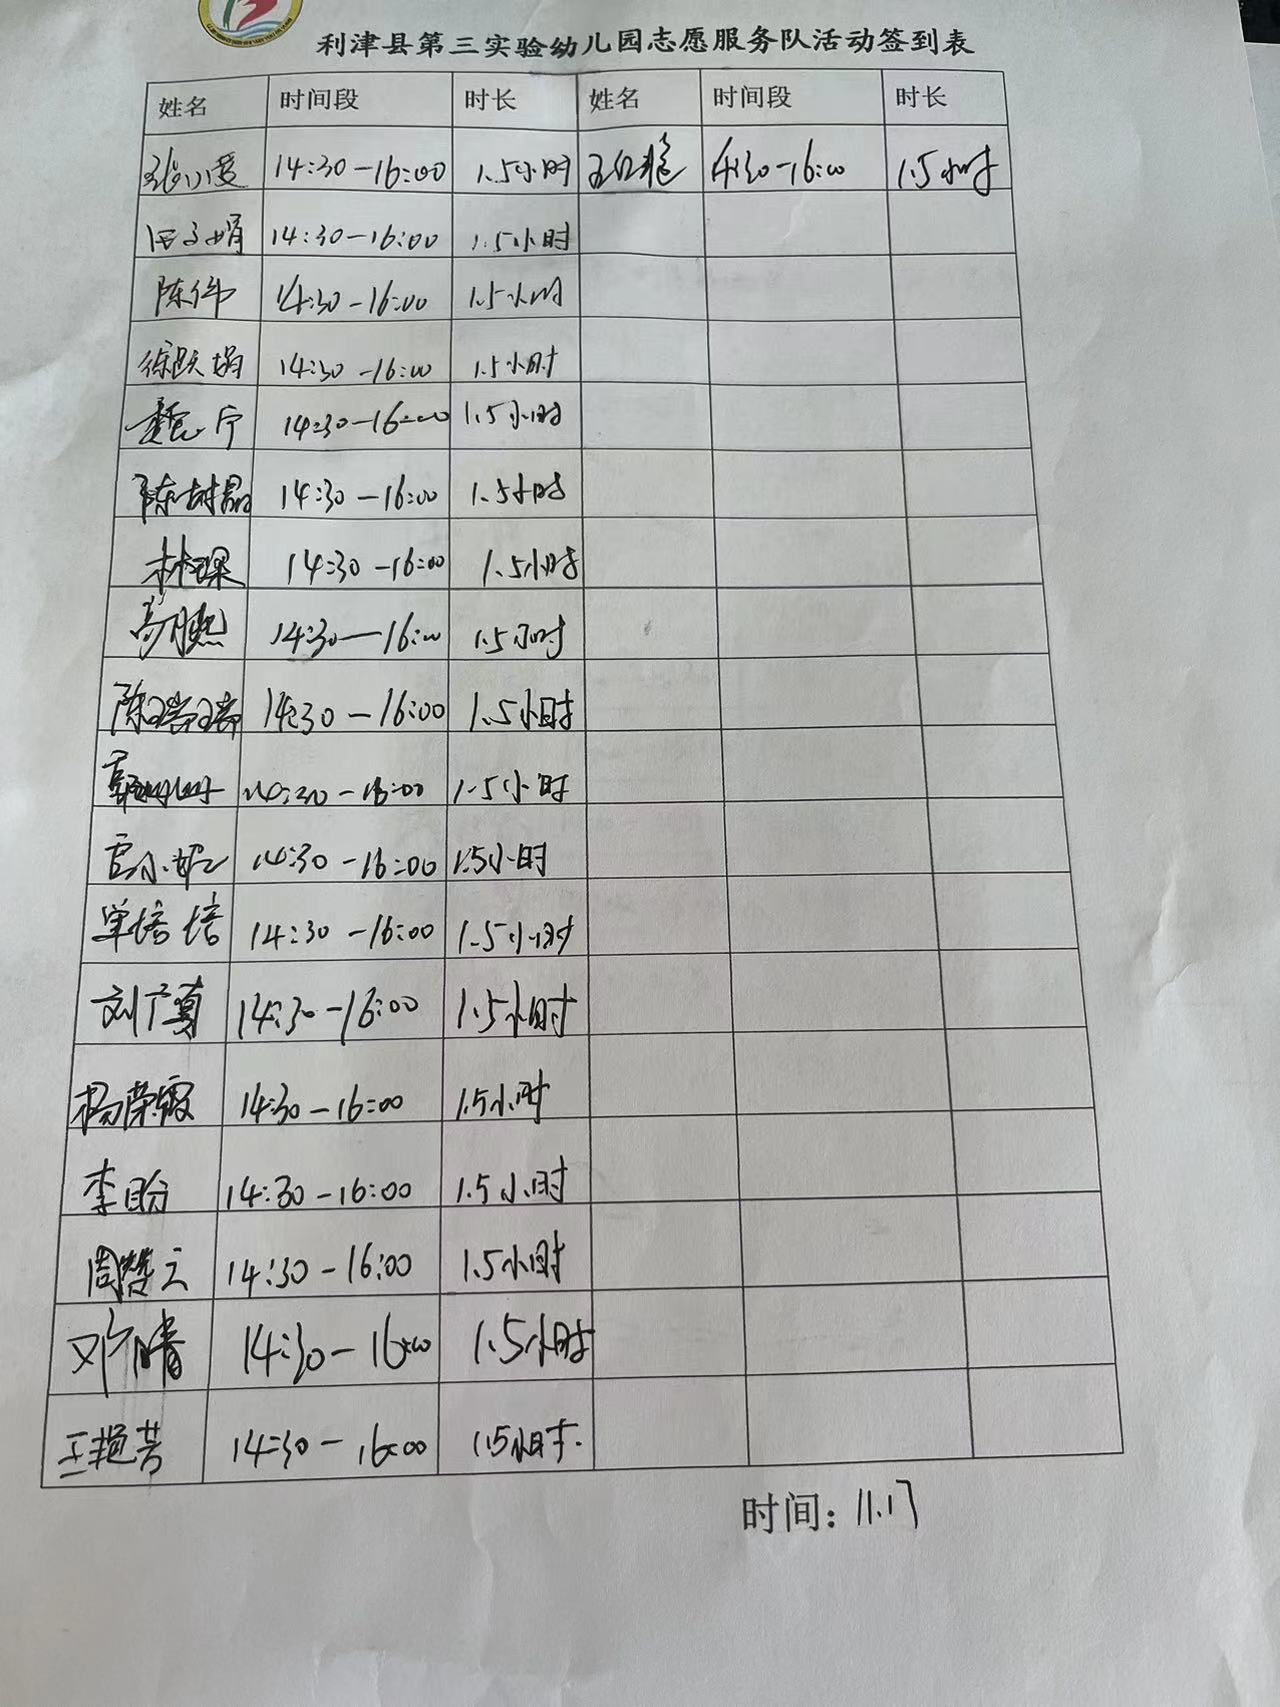 利津县第三实验幼儿园志愿服务队活动签到表
姓名 时间段 时长 姓名 时间段 时长
张小霞 14:30-16:00 1.5小时 14:30-16:00 1.5小时
14:30-16:00 1.5小时
陈伟 14:30-16:00 1.5小时
徐跃娟 14:30-16:00 1.5小时
14:30-16:00 1.5小时
陈树晶 14:30-16:00 1.5小时
林琛 14:30-16:00 1.5小时
高胜熙 14:30-16:00 1.5小时
陈瑞瑞 14:30-16:00 1.5小时
14:30-16:00 1.5小时
14:30-16:00 1.5小时
单培培 14:30-16:00 1.5小时
刘广真 14:30-16:00 1.5小时
杨荣霞 14:30-16:00 1.5小时
李盼 14:30-16:00 1.5小时
周赞云 14:30-16:00 1.5小时
邓晴 14:30-16:00 1.5小时
王艳芳 14:30-16:00 1.5小时.
时间：11.17